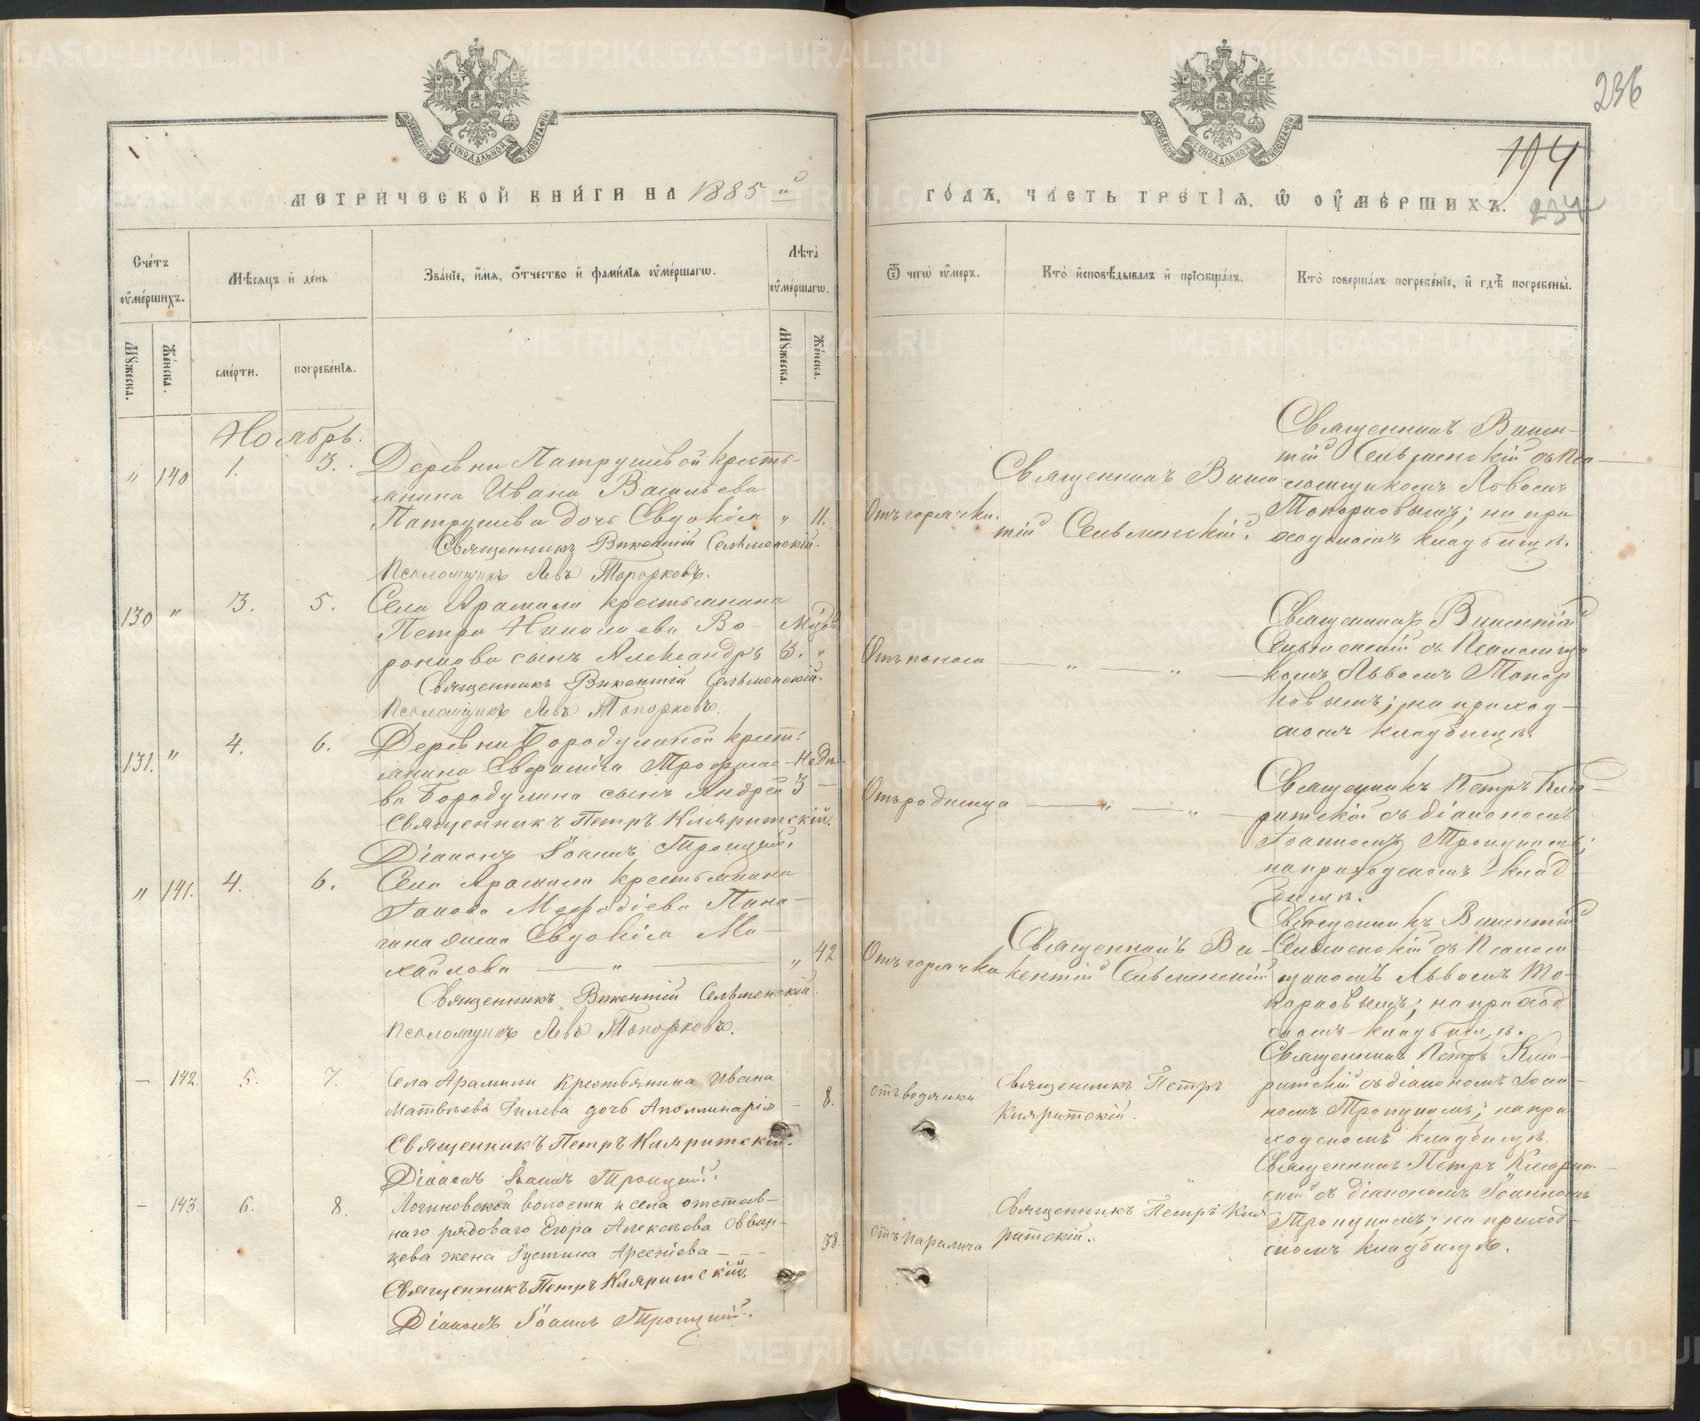 236
194
234
МЕТРИЧЕСКОЙ КНИГИ НА 1885 й
ГОДЪ, ЧАСТЬ ТРЕТІЯ, Ѿ ОУМЕРШИХЪ.
Счетъ оумершихъ.
Мѣсяцъ и день
Званіе, имя, отчество и фамилія оумершагѡ.
Лѣта оумершагѡ.
Мужеска.
Женска.
смерти.
погребенія.
Мужеска.
Женска.
Ѿ чегѡ оумеръ.
Кто исповѣдывалъ и пріобщалъ.
Кто совершалъ погребеніе, и гдѣ погребены.
Ноябрь.
" 140 1. 3. Деревни Патрушевой кресть-
янина Ивана Васильева
Патрушева дочь Евдокія " 11.
Священникъ Викентій Сельменскій.
Псаломщикъ Левъ Топорковъ.
Отъ горячки.
Священникъ Викен
тій Сельменскій.
Священникъ Викен-
тій Сельменскій съ Пса-
ломщикомъ Львомъ
Топорковымъ; на при
ходскомъ кладбищѣ.
130 " 3. 5. Села Арамили крестьянина
Петра Николаева Во- Мѣс.
ронкова сынъ Александръ 3. "
Священникъ Викентій Сельменскій.
Псаломщикъ Левъ Топорковъ.
Отъ поноса — " — "
Священникъ Викентій
Сельменскій съ Псаломщи
комъ Львомъ Топор
ковымъ; на приход-
скомъ кладбищѣ.
131. " 4. 6. Деревни Бородулиной кресть
янина Евфимія Трофимо- Недѣл
ва Бородулина сынъ Андрей 3
Священникъ Петръ Кляритскій.
Діаконъ Іоаннъ Троицкій.
Отъ родимца — " — "
Священникъ Петръ Кля-
ритскій съ діакономъ
Іоанномъ Троицкимъ;
на приходскомъ клад
бищѣ.
" 141. 4. 6. Села Арамили крестьянина
Іакова Меѳодіева Пина-
гина жена Евдокія Ми-
хайлова — " — " 42
Священникъ Викентій Сельменскій.
Псаломщикъ Левъ Топорковъ.
Отъ горячки
Священникъ Ви-
кентій Сельменскій
Священникъ Викентій
Сельменскій съ Псалом
щикомъ Львомъ То-
порковымъ; на приход
скомъ кладбищѣ.
— 142. 5. 7. Села Арамили крестьянина Ивана
Матвѣева Гилева дочь Аполлинарія — 8.
Священникъ Петръ Кляритскій.
Діаконъ Іоаннъ Троицкій.
отъ водянки
Священникъ Петръ
Кляритскій.
Священникъ Петръ Кля-
ритскій съ діакономъ Іоан-
номъ Троицкимъ; на при
ходскомъ кладбищѣ.
— 143. 6. 8. Логиновской волости и села отстав-
наго рядоваго Егора Алексѣева
жена Іустина Арсеніева — 38
Священникъ Петръ Кляритскій.
Діаконъ Іоаннъ Троицкій.
отъ паралича
Священникъ Петръ Кля
ритскій.
Священникъ Петръ Клярит-
скій съ діакономъ Іоанномъ
Троицкимъ; на приход-
скомъ кладбищѣ.
METRIKI.GASO-URAL.RU